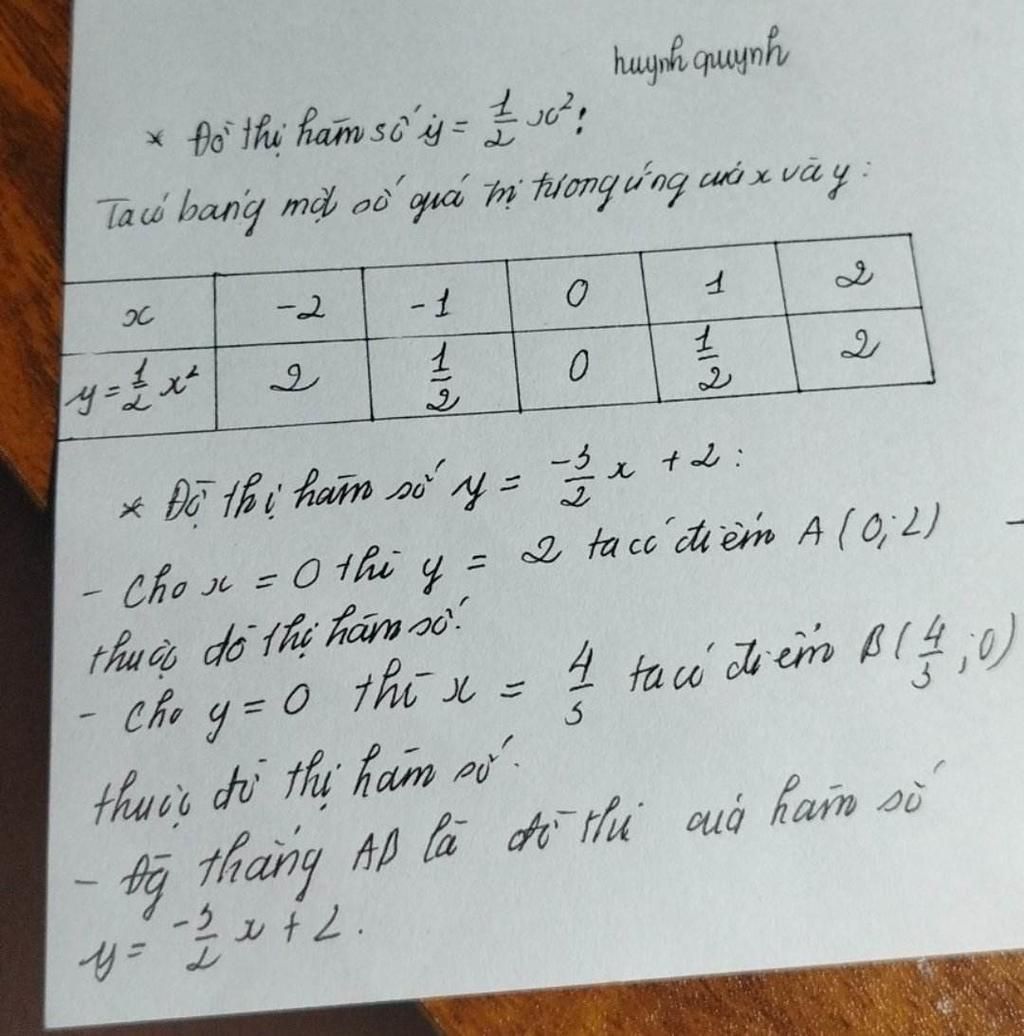 huynh quynh
* Đồ thị hàm số y = 1/2 x²:
Ta có bảng một số giá trị tương ứng của x và y:
x -2 -1 0 1 2
y = 1/2 x² 2 1/2 0 1/2 2
* Đồ thị hàm số y = -3/2 x + 2:
- Cho x = 0 thì y = 2 ta có điểm A (0; 2) -
thuộc đồ thị hàm số.
- Cho y = 0 thì x = 4/3 ta có điểm B (4/3; 0)
thuộc đồ thị hàm số.
- Đg thẳng AB là đồ thị của hàm số
y = -3/2 x + 2.